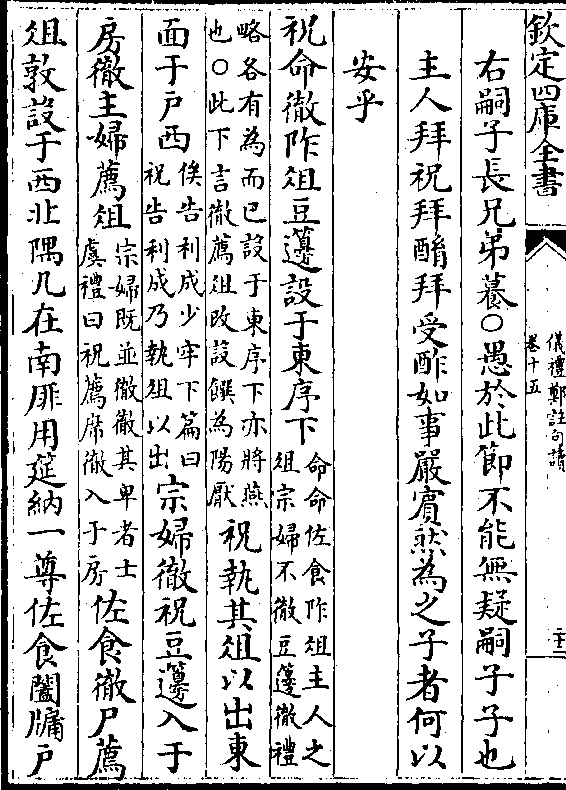 欽定四庫全書
儀禮鄭註句讀
卷十五
右嗣子長兄弟養○愚於此節不能無疑嗣子子也
主人拜祝拜酳拜受酢如事嚴賓然為之子者何以
安乎
祝命徹阼俎豆籩設于東序下命命佐食阼俎主人之
俎宗婦不徹豆籩徹禮
略各有為而已設于東序下亦將燕
也○此下言徹薦俎改設饌為陽厭祝執其俎以出東
面于戶西俟告利成少牢下篇曰
祝告利成乃執俎以出宗婦徹祝豆籩入于
房徹主婦薦俎宗婦既並徹徹其卑者士
虞禮曰祝薦席徹入于房佐食徹尸薦
俎敦設于西北隅几在南厞用筵納一尊佐食闔牖戶